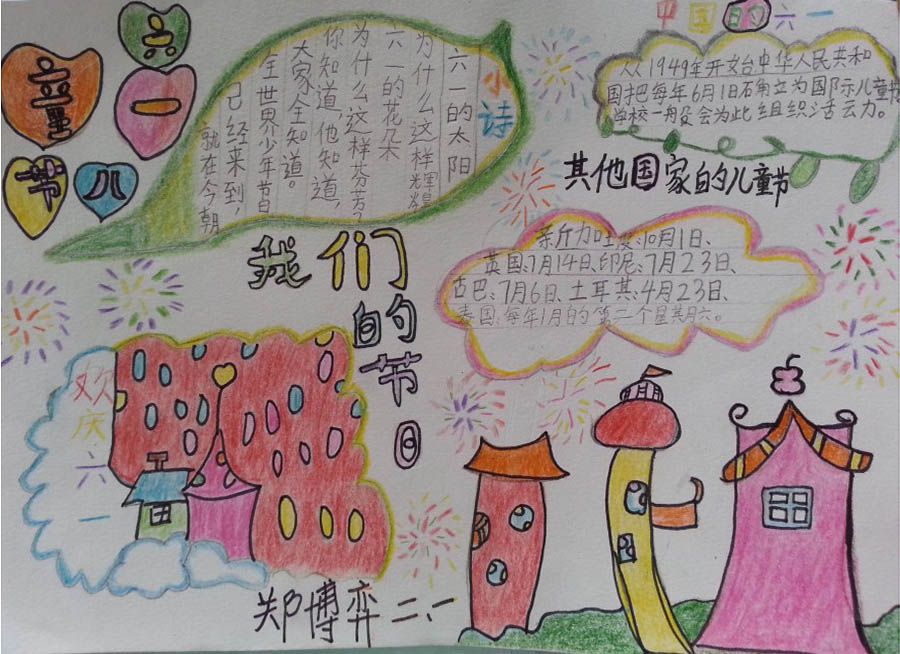 六一
儿童节
小诗
六一的太阳
为什么这样
六一的花朵
为什么这样芬芳?
你知道,他知道,
大家全知道。
全世界少年节日
已经来到,
就在今朝
中国的六一
从1949年开始中华人民共和
国把每年6月1日确立为国际儿童节
学校一般会为此组织活动。
其他国家的儿童节
新加坡:10月1日、
英国:7月14日、印尼:7月23日、
古巴:7月6日、土耳其:4月23日、
泰国:每年1月的第二个星期六。
我们
的节日
欢庆六一
郑博弈二、一